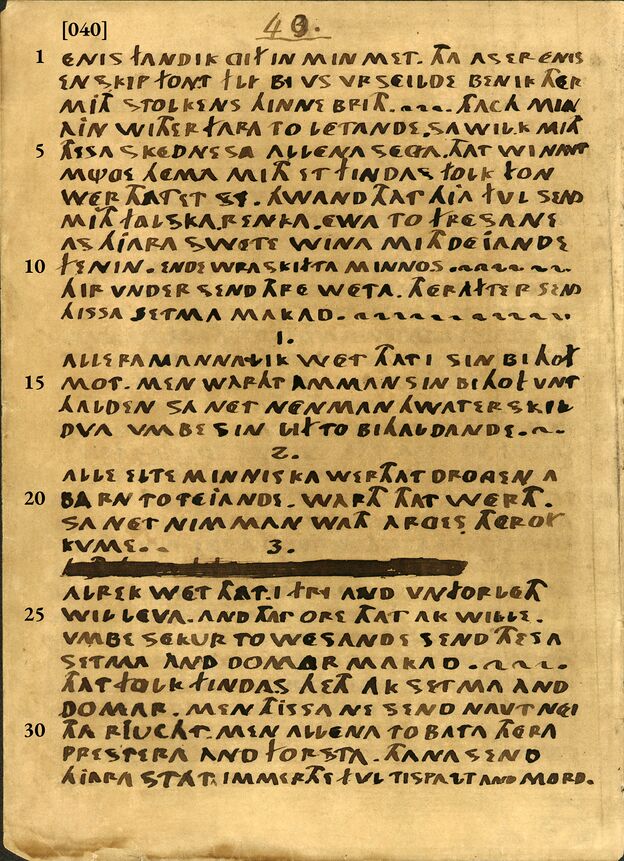 [040]
40.
1 ENIS FANDIK IN MIN MET. THA AS ER ENIS
EN SKIP FONT BI US URSEILDE BENIK THER
MITH STOLKENS HINNE BRIT. THACH MIN
WITHER FARA TO LETANDE. SA WILK MITH
5 THISSA SKEDNESSA ALLENA SEGA. THAT WI NAVT
HEMA MITH ET FINDAS FOLK FON
WER THATET SY. HWAND THAT HIA FUL SEND
MITH FALSKA RENKA. EWA TO FRESANE
AS HJARA SWETE WINA MITH DEIANDE
10 FENIN. ENDE WRASKIFTA MINNOS.
HIR UNDER SEND THRE WETA. THER AFTER SEND
THISSA SETMA MAKAD.
1.
ALLERAMANNALIK WET THAT I SIN BIHOF
15 MOT. MEN WARTH AMMAN SIN BIHOF UNT
HALDEN SA NET NENMAN HWAT ER SKIL
DVA UMBE SIN LIF TO BIHALDANDE.
2.
ALLE ELTE MINNISKA WERTHAT DRONGEN A
20 BARN TO TEIANDE. WARTH THAT WERTH.
SA NET NIMMAN WATH ARGES THEROF
KUME. 3.
ALREK WET THAT I FRI AND UNFORLETH
25 WIL LEVA. AND THAT ORE THAT AK WILLE.
UMBE SEKUR TO WESANDE SEND THESA
SETMA AND DOMAR MAKAD.
THAT FOLK FINDAS HETH AK SETMA AND
DOMAR. MEN THISSA NE SEND NAVT NEI
30 THA RIUCHT. MEN ALLENA TO BATA THERA
PRESTERA AND FORSTA. THANA SEND
HJARA STAT IMMERTHE FUL TISPALT AND MORD.